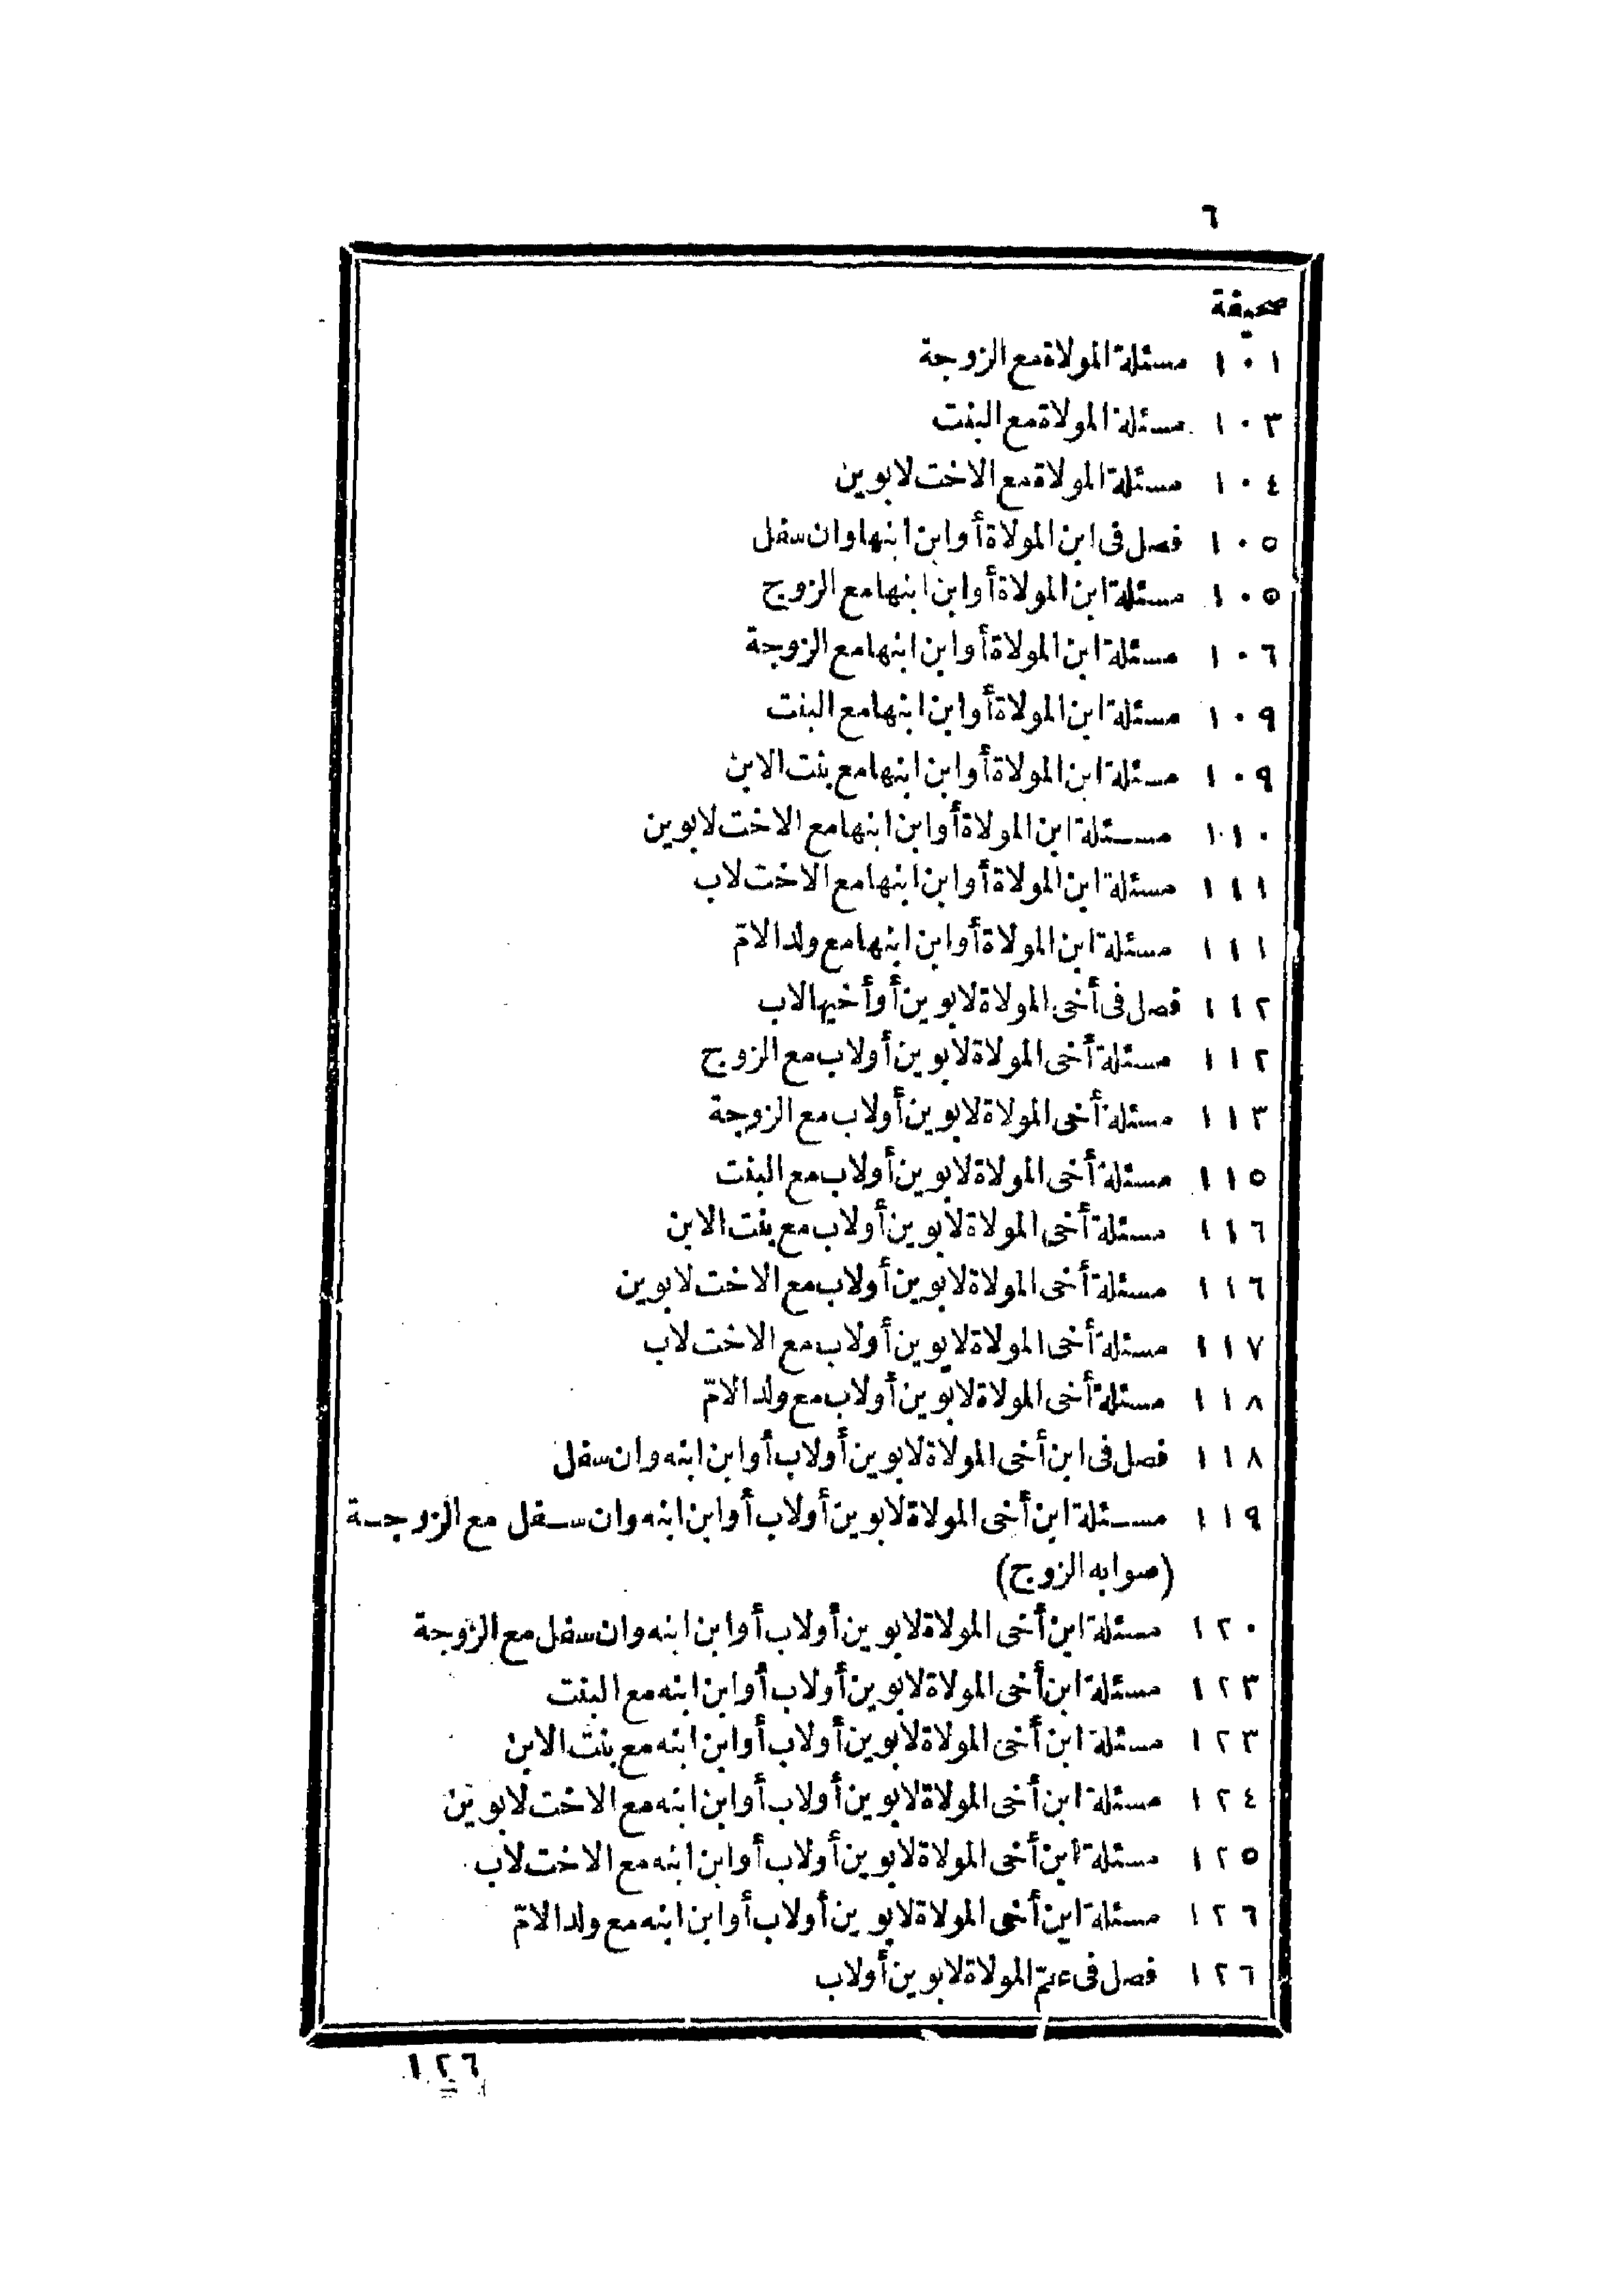 ٦
صحيفة
١٠١ مسئلة المولاة مع الزوجة
١٠٣ مسئلة المولاة مع البنت
١٠٤ مسئلة المولاة مع الاخت لابوين
١٠٥ فصل فى ابن المولاة أو ابن ابنها وان سفل
١٠٥ مسئلة ابن المولاة أو ابن ابنها مع الزوج
١٠٦ مسئلة ابن المولاة أو ابن ابنها مع الزوجة
١٠٩ مسئلة ابن المولاة أو ابن ابنها مع البنت
١٠٩ مسئلة ابن المولاة أو ابن ابنها مع بنت الابن
١١٠ مسئلة ابن المولاة أو ابن ابنها مع الاخت لابوين
١١١ مسئلة ابن المولاة أو ابن ابنها مع الاخت لاب
١١١ مسئلة ابن المولاة أو ابن ابنها مع ولد الامّ
١١٢ فصل فى أخى المولاة لابوين أو أخيها لاب
١١٢ مسئلة أخى المولاة لابوين أولاب مع الزوج
١١٣ مسئلة أخى المولاة لابوين أولاب مع الزوجة
١١٥ مسئلة أخى المولاة لابوين أولاب مع البنت
١١٦ مسئلة أخى المولاة لابوين أولاب مع بنت الابن
١١٦ مسئلة أخى المولاة لابوين أولاب مع الاخت لابوين
١١٧ مسئلة أخى المولاة لابوين أولاب مع الاخت لاب
١١٨ مسئلة أخى المولاة لابوين أولاب مع ولد الامّ
١١٨ فصل فى ابن أخى المولاة لابوين أولاب أو ابن ابنه وان سفل
١١٩ مسئلة ابن أخى المولاة لابوين أولاب أو ابن ابنه وان سفل مع الزوجة
(صوابه الزوج)
١٢٠ مسئلة ابن أخى المولاة لابوين أولاب أو ابن ابنه وان سفل مع الزوجة
١٢٣ مسئلة ابن أخى المولاة لابوين أولاب أو ابن ابنه مع البنت
١٢٣ مسئلة ابن أخى المولاة لابوين أولاب أو ابن ابنه مع بنت الابن
١٢٤ مسئلة ابن أخى المولاة لابوين أولاب أو ابن ابنه مع الاخت لابوين
١٢٥ مسئلة ابن أخى المولاة لابوين أولاب أو ابن ابنه مع الاخت لاب
١٢٦ مسئلة ابن أخى المولاة لابوين أولاب أو ابن ابنه مع ولد الامّ
١٢٦ فصل فى عمّ المولاة لابوين أولاب
١٢٦